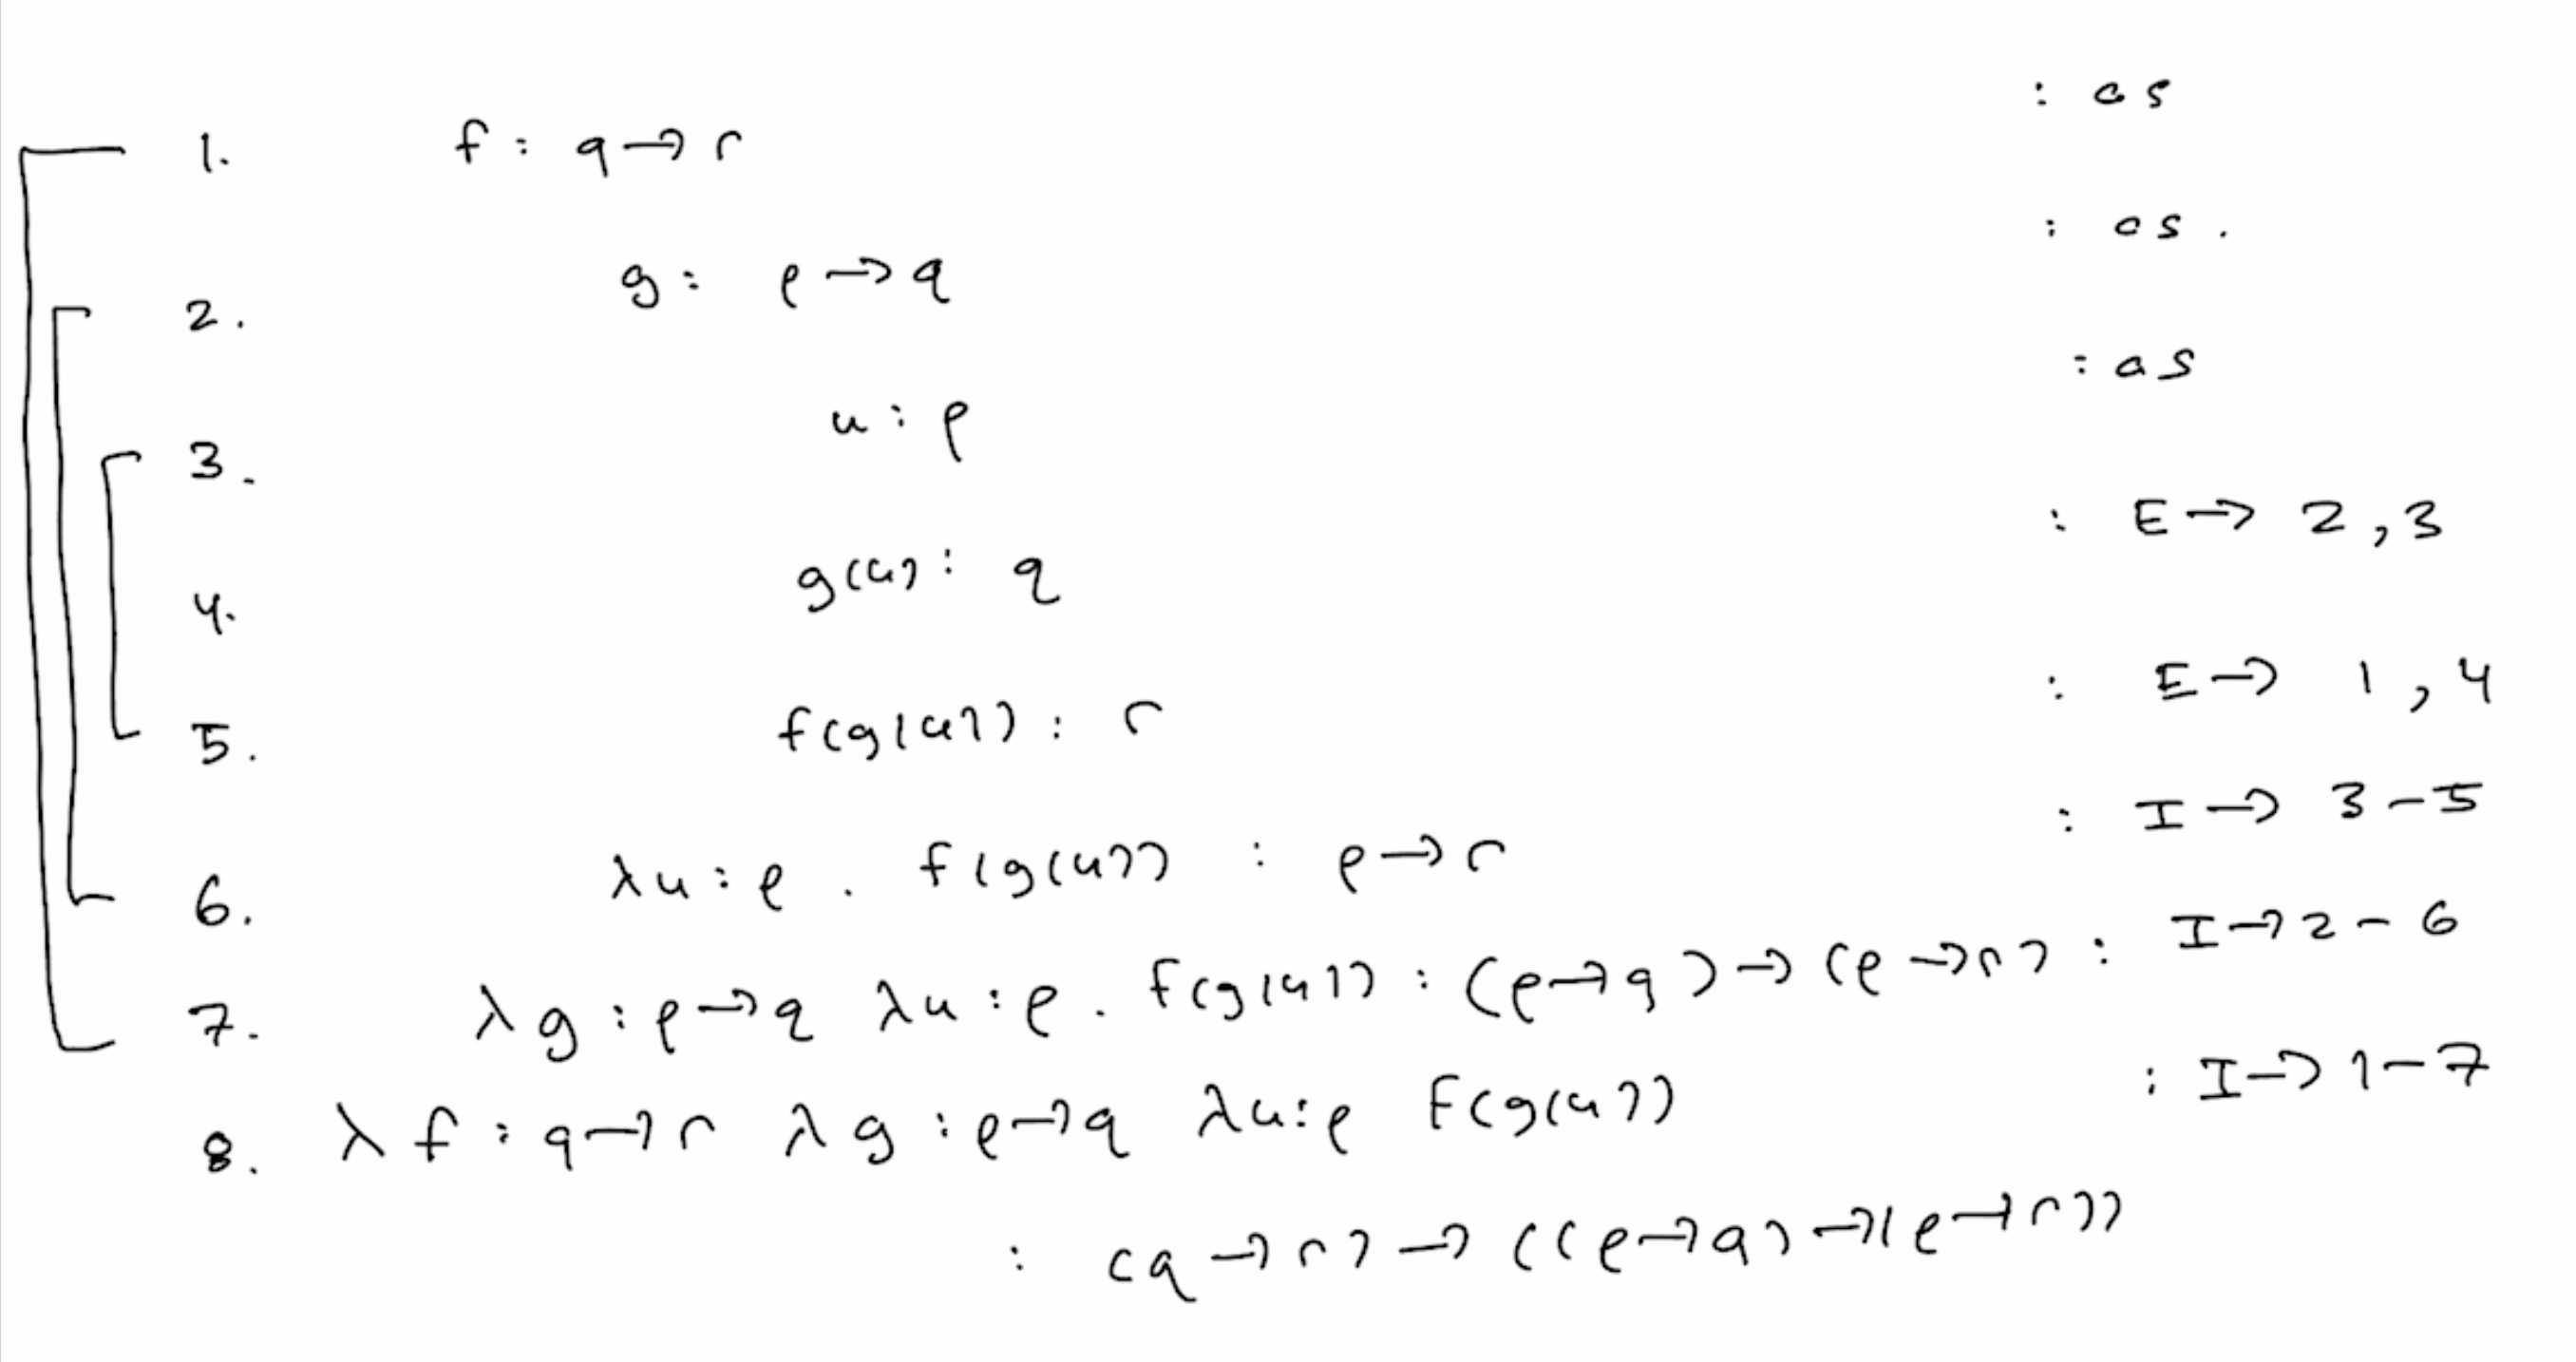 1. f : q → r : as
2. g : p → q : as.
3. u : p : as
4. g(u) : q : E→ 2,3
5. f(g(u)) : r : E→ 1,4
6. λu : p . f(g(u)) : p → r : I→ 3-5
7. λg : p → q λu : p . f(g(u)) : (p → q) → (p → r) : I→ 2-6
8. λf : q → r λg : p → q λu : p f(g(u)) : I→ 1-7
: (q → r) → ((p → q) → (p → r))